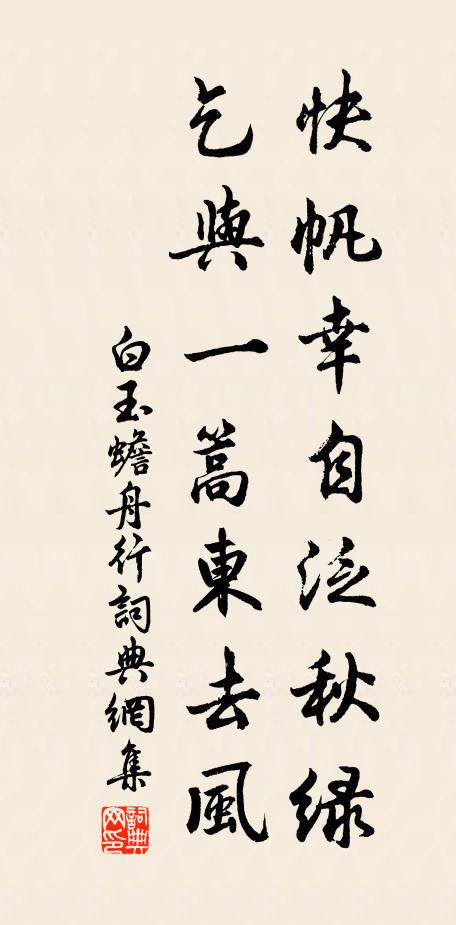 快帆幸自泛秋緑
乞與一篙東去風
白玉蟾舟行詞典網集
詞典网印